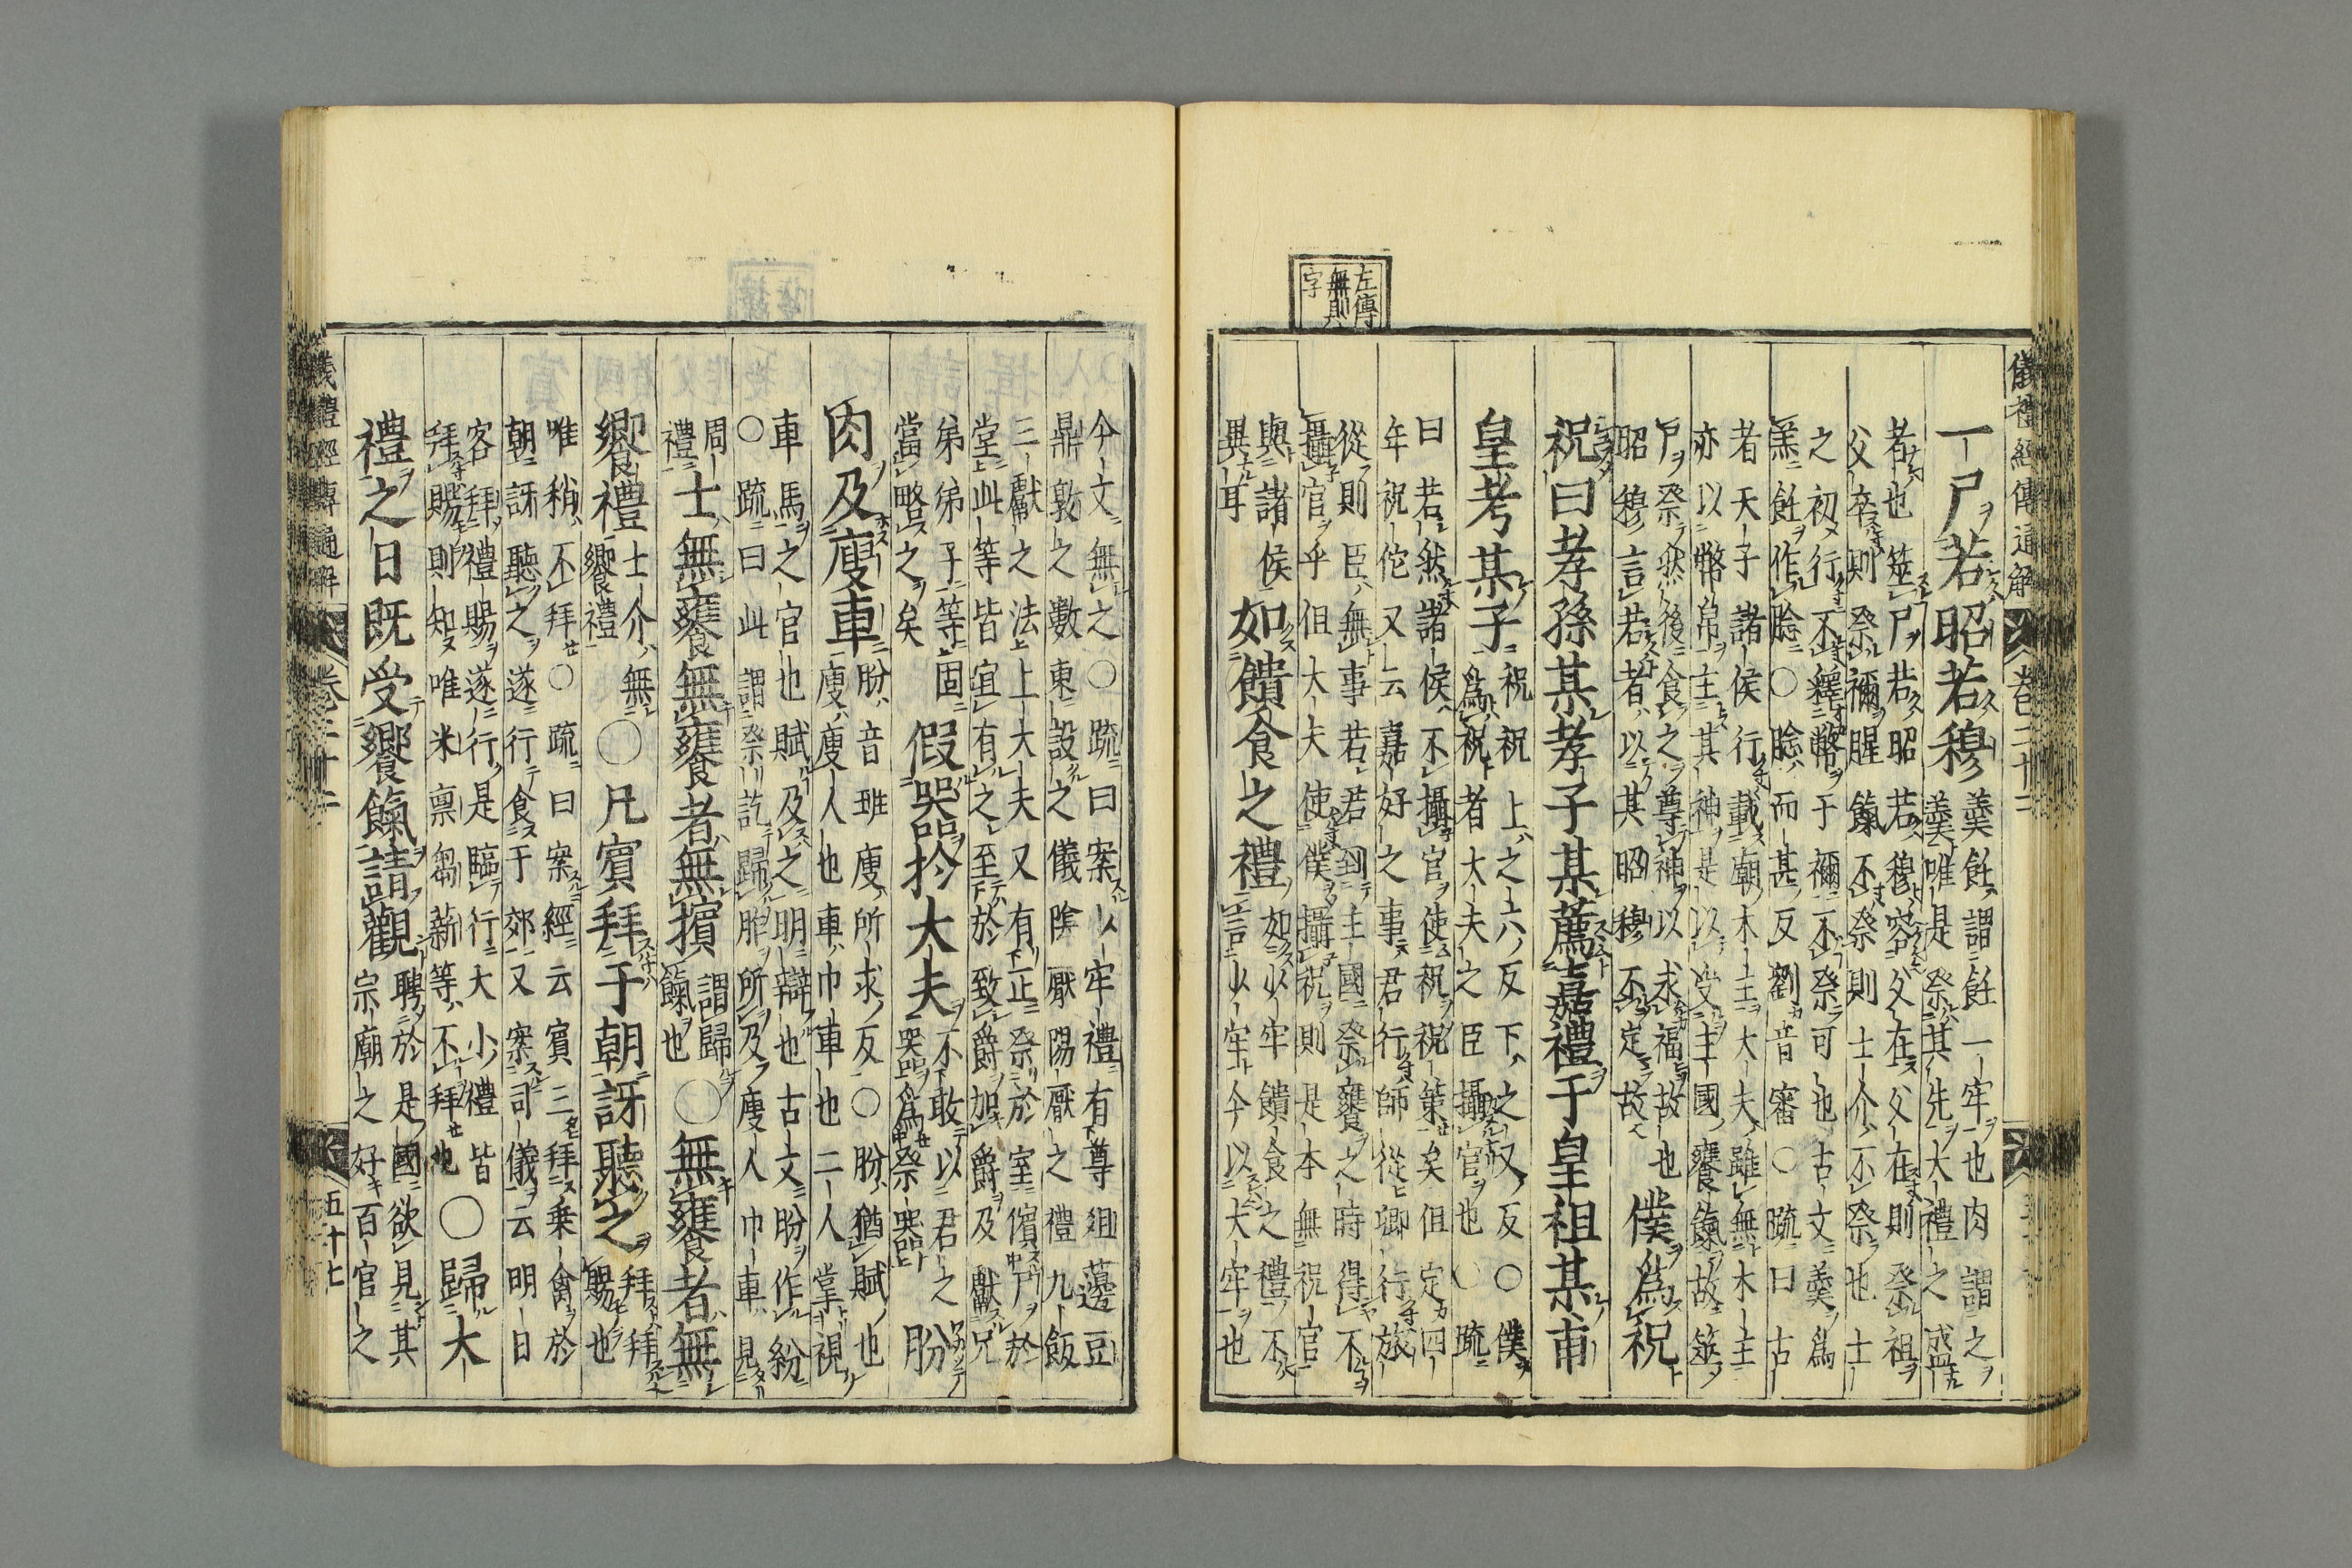 儀禮經傳通解 卷二十二
左傳
無則
字
一尸若昭若穆
羹飪謂飪一牢也肉謂之
羹唯是祭其先大禮之盛
者也筮尸若昭若穆容父在父在則祭祖
父卒則祭禰腥餼不祭則士介不祭也士
之初行不釋幣于禰不祭可也古文羹爲
羔飪作腍○腍而甚反劉音審○疏曰古
者天子諸侯行載廟木主大夫雖無木主
亦以幣帛主其神是以受主國饔餼故筮
尸祭然後食之尊神以求福故也
昭穆言若者以其昭穆不定故
僕爲祝
祝曰孝孫某孝子某薦嘉禮于皇祖某甫
皇考某子
祝祝上之六反下之又反○僕
爲祝者大夫之臣攝官也○疏
曰若然諸侯不攝官使祝祝策矣但定四
年祝佗又云嘉好之事君行師從卿行旅
從則臣無事若到主國祭饔之時得不
攝官乎但大夫使僕攝祝則是本無祝官
與諸侯
異耳
如饋食之禮
如少牢饋食之禮不
言少牢今以大牢也
今文無之○疏曰案少牢禮有尊俎籩豆
鼎敦之數東設之儀陰厭陽厭之禮九飯
三獻之法上大夫又有正祭於室儐尸於
堂此等皆宜有之至於致爵加爵及獻兄
弟弟子等固
當略之矣
假器於大夫
不敢以君之
器爲祭器
肦
肉及廋車
肦音班廋所求反○肦猶賦也
廋廋人也車巾車也二人掌視
車馬之官也賦及之明辯也古文肦作紛
○疏曰此謂祭訖歸胙所及廋人巾車見
周
禮
士無饔無饔者無擯
謂歸
餼也
○無饔者無
饗禮
士介無
饗禮
○凡賓拜于朝訝聽之
拜拜
賜也
唯稍不拜○疏曰案經云賓三拜乘禽於
朝訝聽之遂行食于郊又案司儀云明日
客拜禮賜遂行是臨行大小禮皆
拜賜則知唯米稟芻薪等不拜也
○歸大
禮之日既受饔餼請觀
聘於是國欲見其
宗廟之好百官之
儀禮經傳通解 卷二十二 五十七